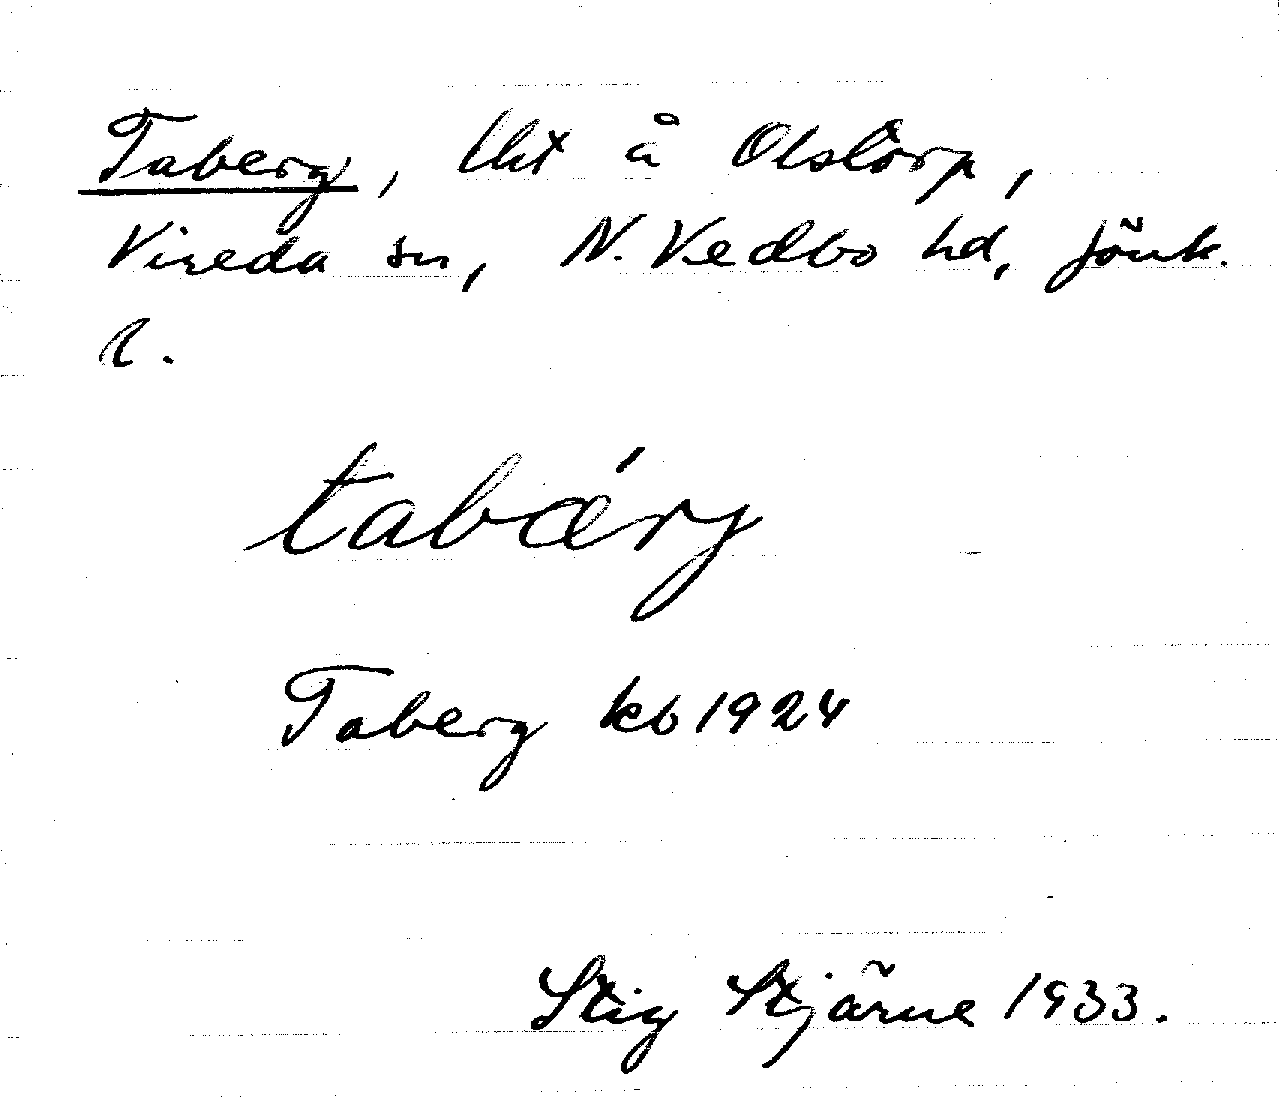 Taberg, lht å Olstorp,
Vireda sn, N. Vedbo hd, Jönk.
l.
tabárj
Taberg kb 1924
Stig Stjärne 1933.